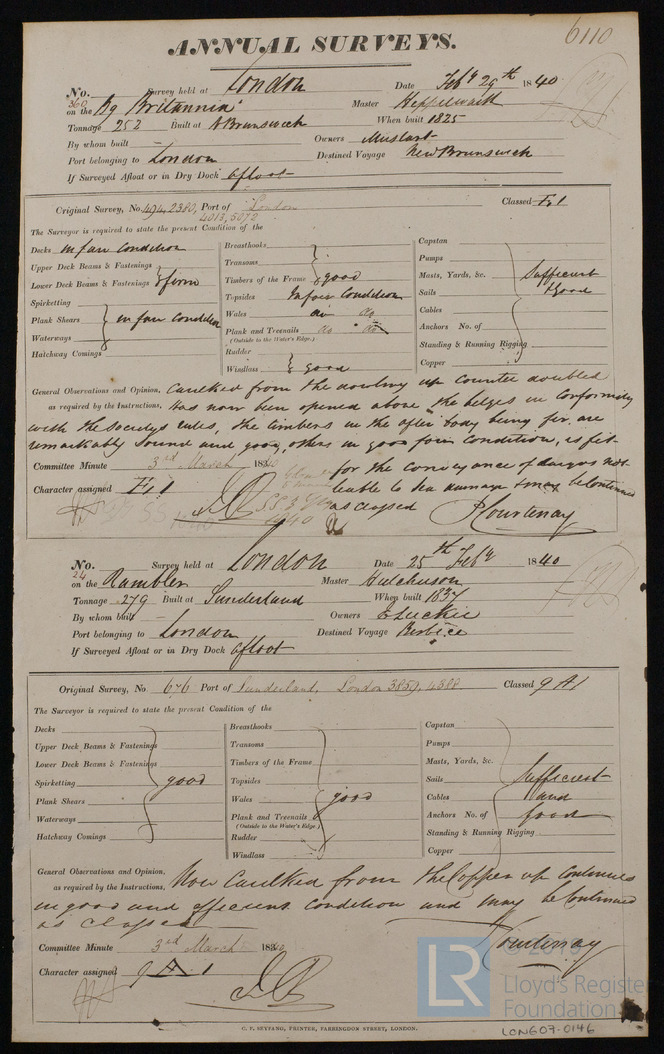 6110
ANNUAL SURVEYS.
No. 360 Survey held at London Date Feby 29th 1840
on the Bg Britannia Master Heppelwaith
Tonnage 252 Built at N Brunswick When built 1825
By whom built — Owners Mustart
Port belonging to London Destined Voyage New Brunswick
If Surveyed Afloat or in Dry Dock afloat
Original Survey, No. 494, 2380, Port of London Classed Æ 1
4013, 5072
The Surveyor is required to state the present Condition of the
Decks in fair Condition
Upper Deck Beams & Fastenings
Lower Deck Beams & Fastenings firm
Spirketting
Plank Shears in fair Condition
Waterways
Hatchway Comings
Breasthooks
Transoms
Timbers of the Frame good
Topsides In fair Condition
Wales do do
Plank and Treenails do do
(Outside to the Water's Edge.)
Rudder
Windlass good
Capstan
Pumps
Masts, Yards, &c. Sufficient
Sails & Good
Cables
Anchors No. of
Standing & Running Rigging
Copper
General Observations and Opinion, Caulked from the doubling up Counter doubled
as required by the Instructions, has now been opened above the belges in Conformity
with the societys rules, the timbers in the after body being fir, are
remarkably sound and good, others in good fair condition, is fit
Committee Minute 3rd March 1840 for the conveyance of Cargos not
Character assigned Æ 1 liable to sea damage & may be Continued
SS 3 Yrs as classed P Courtenay
1840
No. 24 Survey held at London Date 25th Feby 1840
on the Rambler Master Hutchinson
Tonnage 279 Built at Sunderland When built 1837
By whom built — Owners E Luckie
Port belonging to London Destined Voyage Berbice
If Surveyed Afloat or in Dry Dock afloat
Original Survey, No. 676 Port of Sunderland, London 3859, 4388 Classed 9 A 1
The Surveyor is required to state the present Condition of the
Decks
Upper Deck Beams & Fastenings
Lower Deck Beams & Fastenings
Spirketting good
Plank Shears
Waterways
Hatchway Comings
Breasthooks
Transoms
Timbers of the Frame
Topsides
Wales good
Plank and Treenails
(Outside to the Water's Edge.)
Rudder
Windlass
Capstan
Pumps
Masts, Yards, &c.
Sails Sufficient
Cables and
Anchors No. of Good
Standing & Running Rigging
Copper
General Observations and Opinion, Now Caulked from the Copper up Continues
as required by the Instructions, in good and efficient Condition and may be Continued
as Classed
Courtenay
Committee Minute 3rd March 1840
Character assigned 9 A 1
LR © 2019
Lloyd's Register
Foundation
C. F. SEYFANG, PRINTER, FARRINGDON STREET, LONDON.
LON607-0146